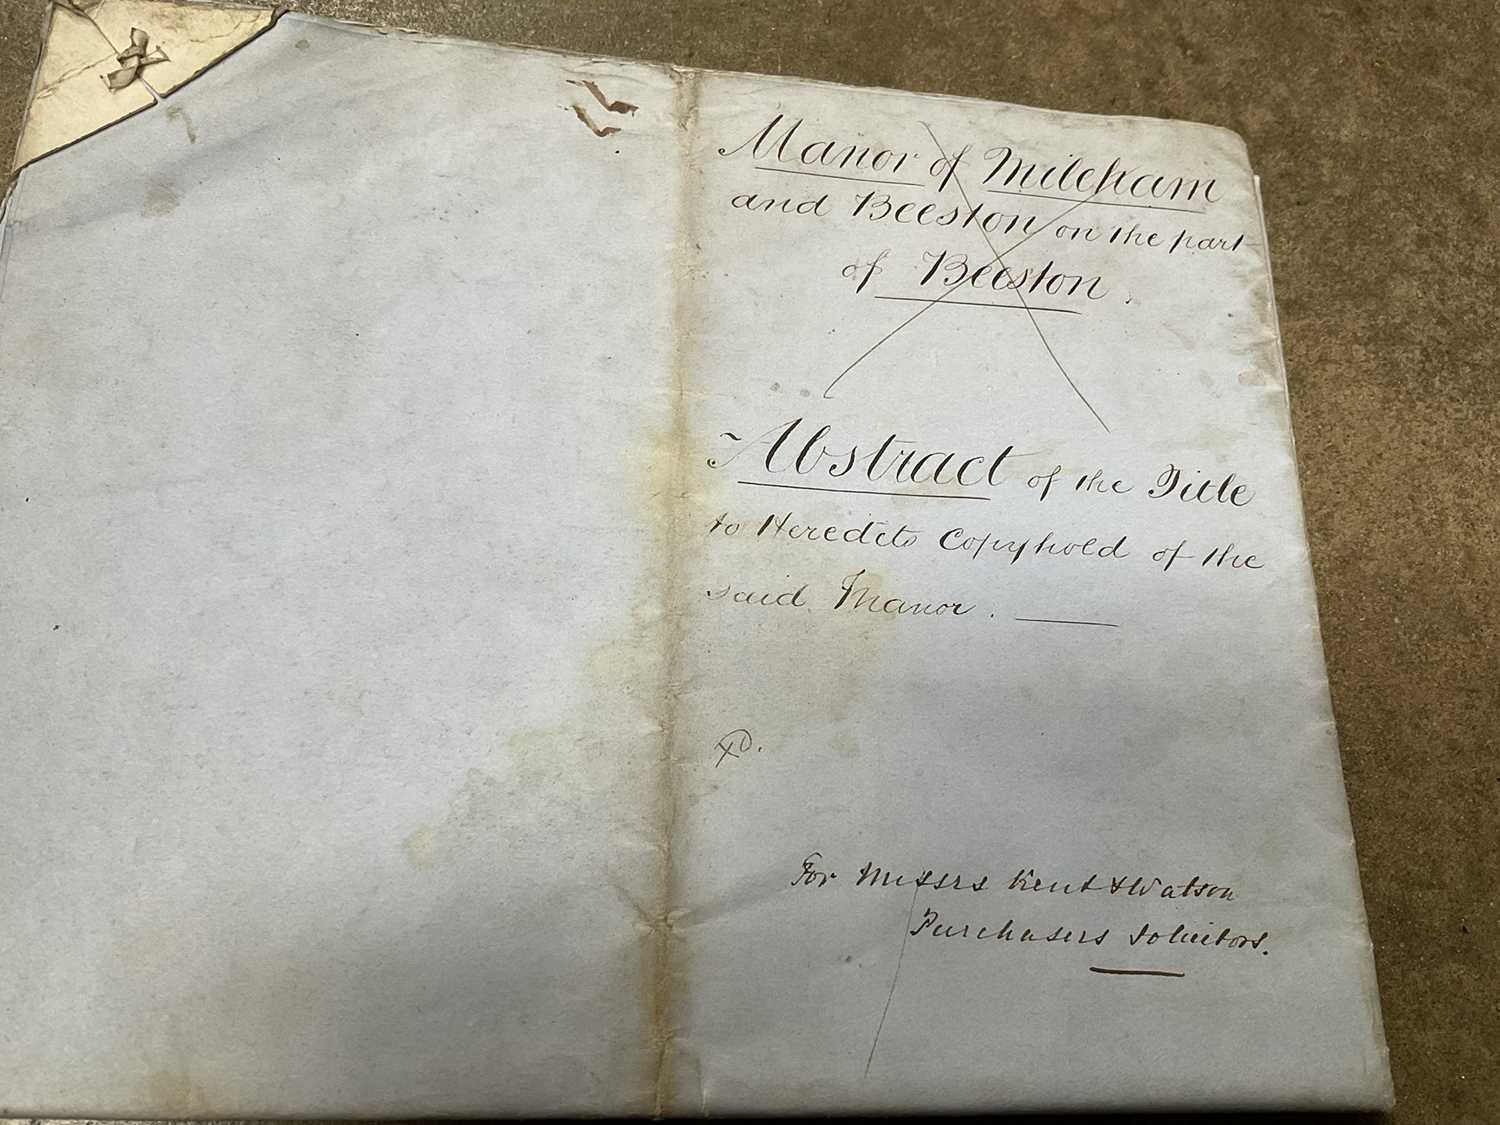 Manor of Mileham
and Beeston on the part
of Beeston.
Abstract of the Title
to Heredits Copyhold of the
said Manor.
For Messrs Kent & Watson
Purchasers Solicitors.